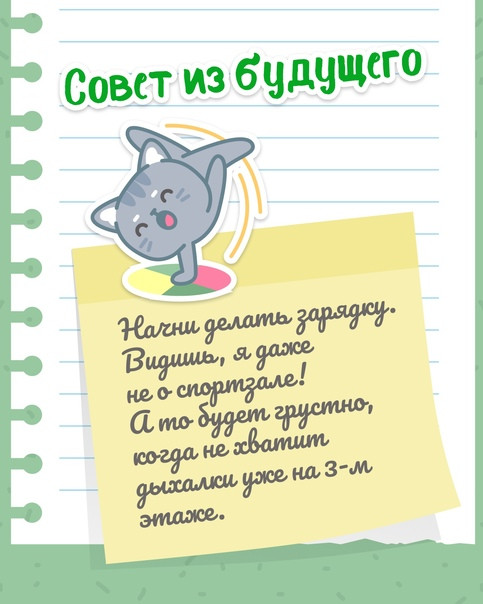 Совет из будущего
Начни делать зарядку.
Видишь, я даже
не о спортзале!
А то будет грустно,
когда не хватит
дыхалки уже на 3-м
этаже.